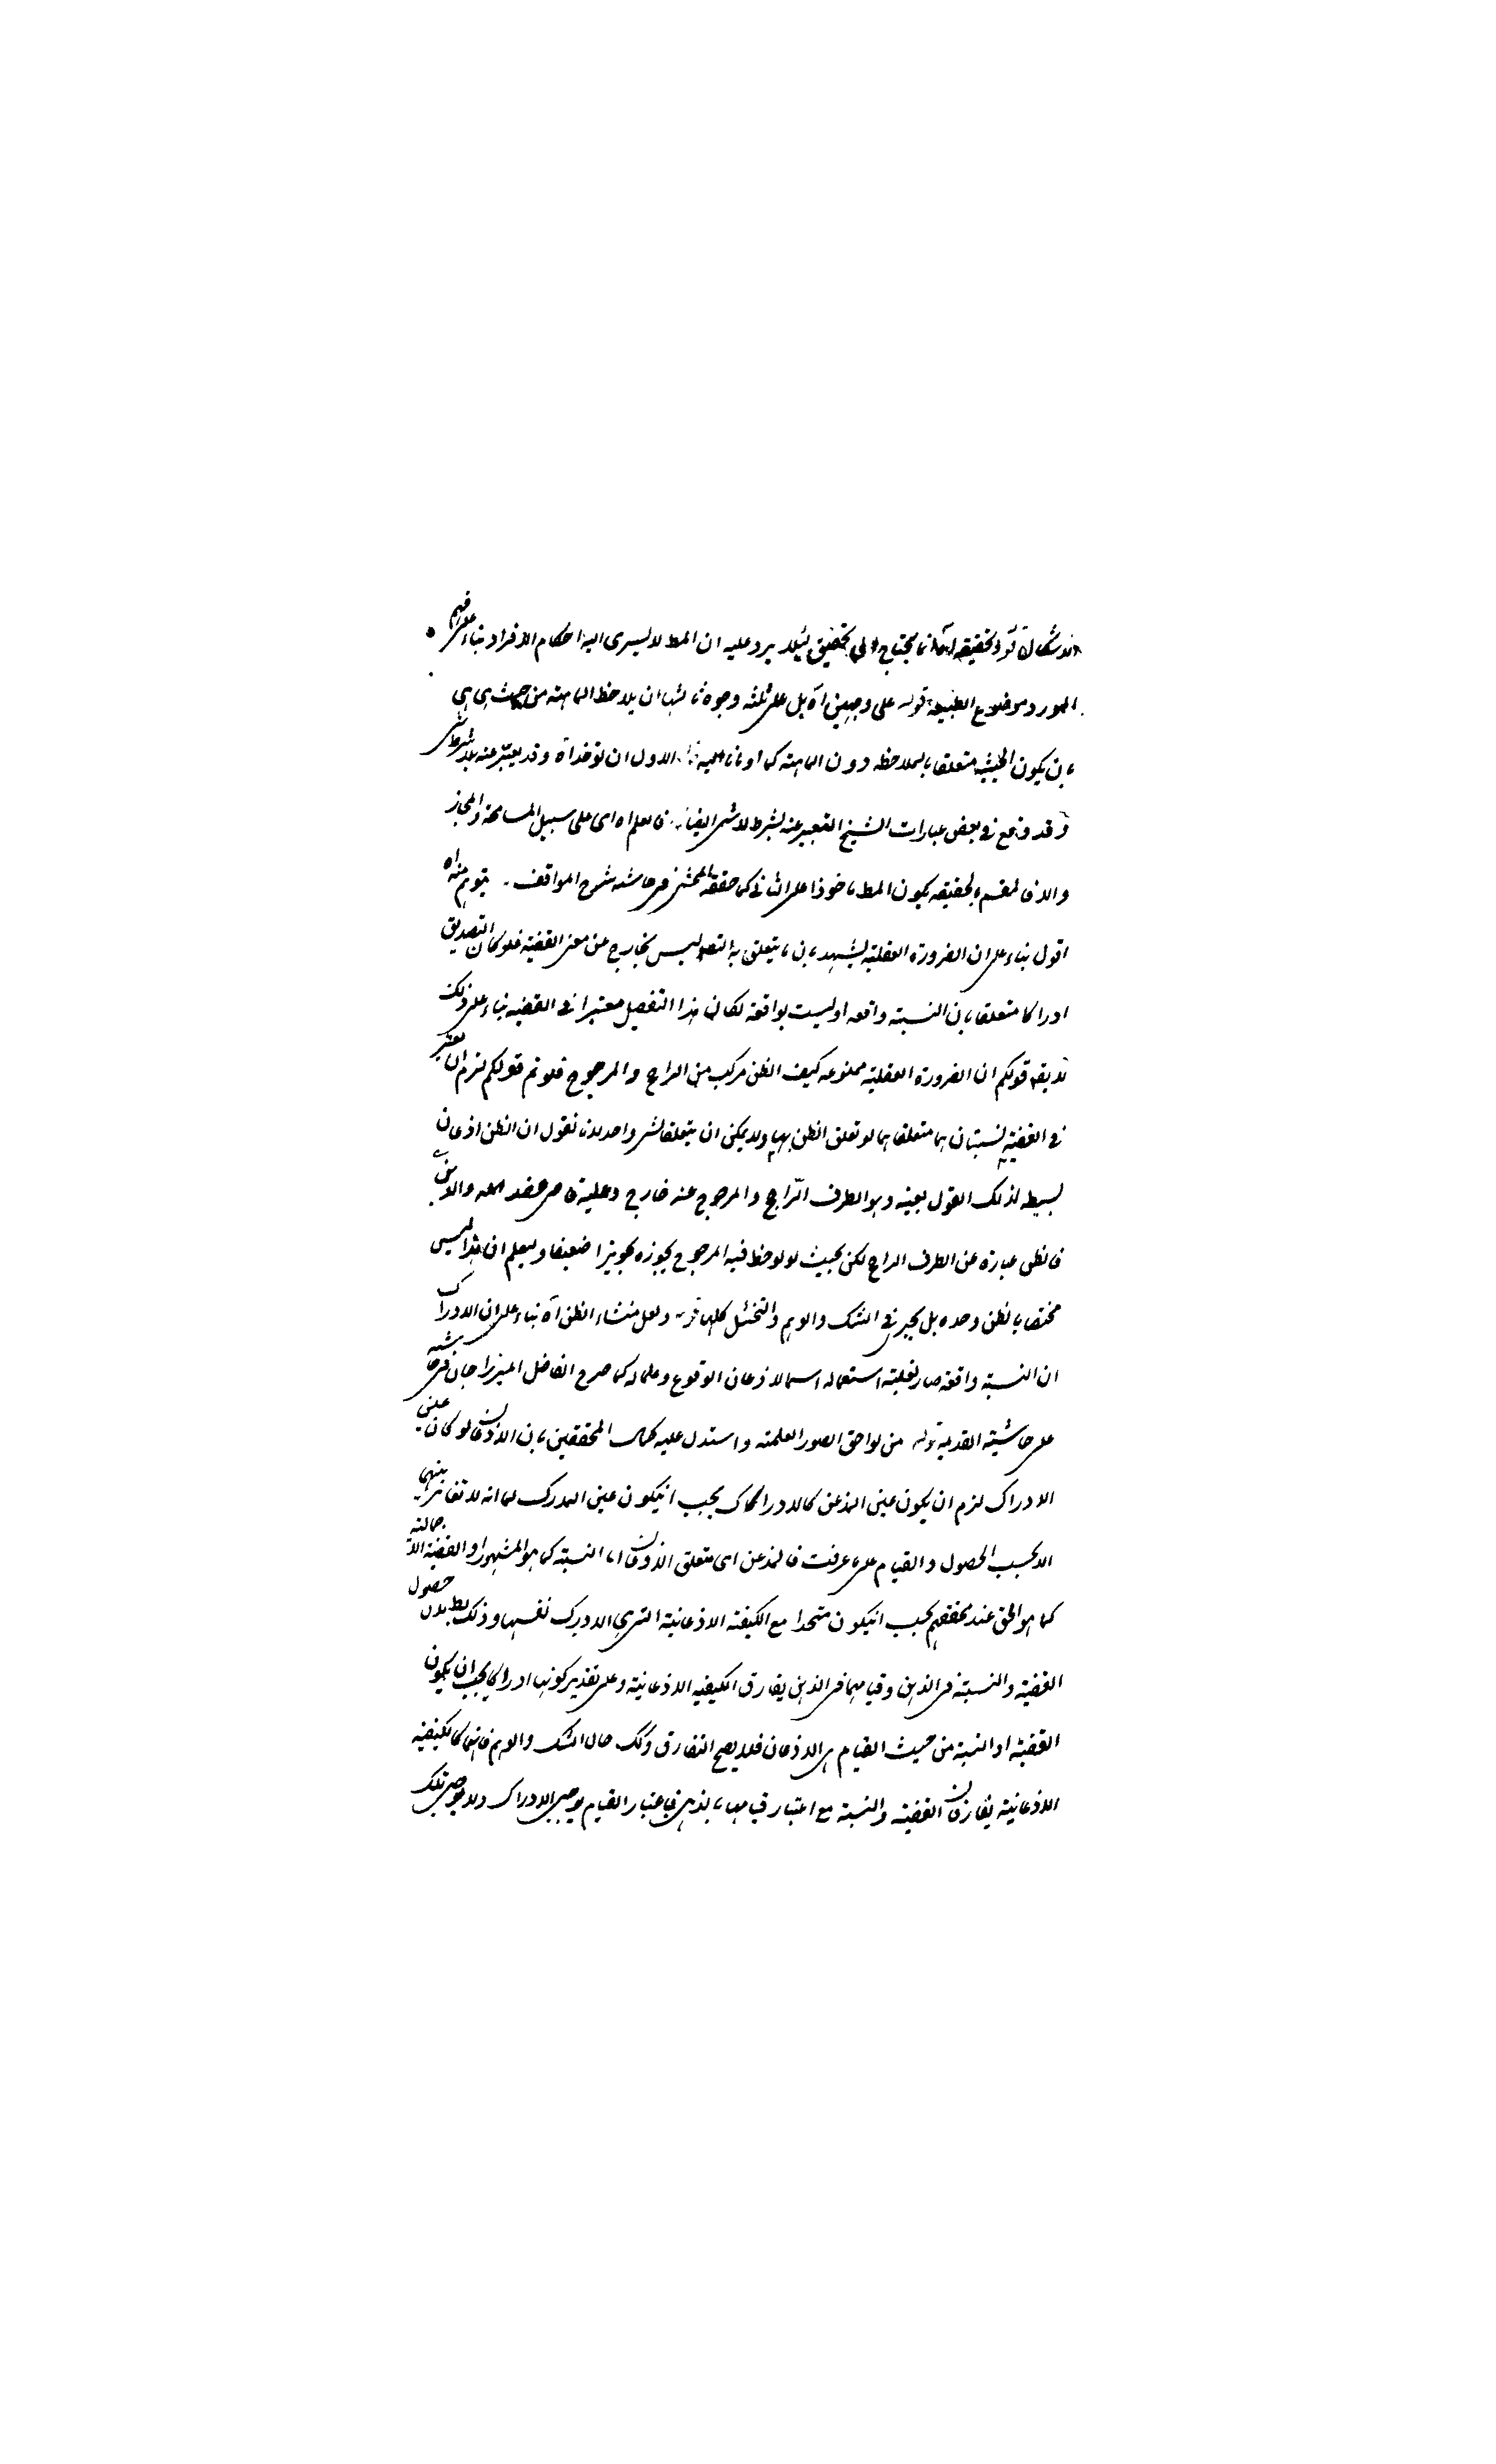 الاشكال قوله وتحقيقه اه انما يحتاج الى تحقيق لئلا يرد عليه ان المط لا يسرى اليه احكام الافراد بناء على فهم
المورد موضوع الطبيعة قوله على وجهين اه بل على ثلثه وجوه ثالثها ان يلاحظ الماهية من حيث هى هى
بان يكون الحيثية متعلقا بالملاحظه دون الماهية كما الاول ان توخذ اه وقد يعبر عنه بلا شرط شى
وقد وقع فى بعض عبارات الشيخ التعبير عنه بشرط لا شى ايضا فاعلم اه اى على سبيل المسامحة والمجاز
والا فالمقسم بالحقيقه يكون المط ماخوذا على الثانى كما حققه المحشى فى حاشيه شرح المواقف يتوهم منه اه
اقول بناء على ان الضرورة العقلية يشهد بان ما يتعلق به التصو ليس بخارج عن معنى القضية فلو كان التصديق
ادراكا متعلقا بان النسبة واقعه او ليست بواقعة لكان هذا التفصيل معتبرا فى القضيه بناء على ذلك
لا يقال قولكم ان الضرورة العقلية ممنوعه كيف الظن مركب من الراجح والمرجوح فلو تم قولكم لزم ان يعتبر
فى القضية نسبتان هما متعلقاهما لو تعلق الظن بهما ولا يمكن ان يتعلقا لشى واحد لانا نقول ان الظن اذعان
بسيط لذلك القول بعينه وهو الطرف الراجح والمرجوح عنه خارج وعليه
فالظن عبارة عن الطرف الراجح لكن بحيث لو لوحظ فيه المرجوح يجوزه تجويزا ضعيفا وليعلم ان هذا ليس
مختصا بالظن وحده بل يجرى فى الشك والوهم والتخئيل كلها قوله ولعل منشاء الظن اه بناء على ان الادراك
ان النسبة واقعة صار لغلبة استعماله اسما لاذعان الوقوع وعلما له كما صرح الفاضل الميرزا جان فى حاشيته
على حاشية القديمة قوله من لواحق الصور العلمية واستدل عليه بعض المحققين بان الاذعان لو كان عين
الادراك لزم ان يكون عين المذعن كالادراك يجب ان يكون عين المدرك لما انه لا تغاير بينهما
الا بحسب الحصول والقيام على ما عرفت فالمذعن اى متعلق الاذعان اما النسبة كما هو المشهور او القضية الاجمالية
كما هو الحق عند محققهم يجب ان يكون متحدا مع الكيفية الاذعانية التى هى الادراك نفسها وذلك بط لان حصول
القضية والنسبة فى الذهن وقيامهما فى الذهن يفارق الكيفيه الاذعانية وعلى تقدير كونها ادراكا يجب ان يكون
القضية او النسبة من حيث القيام هى الاذعان فلا يصح التفارق وكك حال الشك والوهم فانهما كالكيفية
الاذعانية يفارقان القضية والنسبة مع اعتبار قيامهما بالذهن فاعتبار القيام يوجب الادراك ولا يوجب تلك